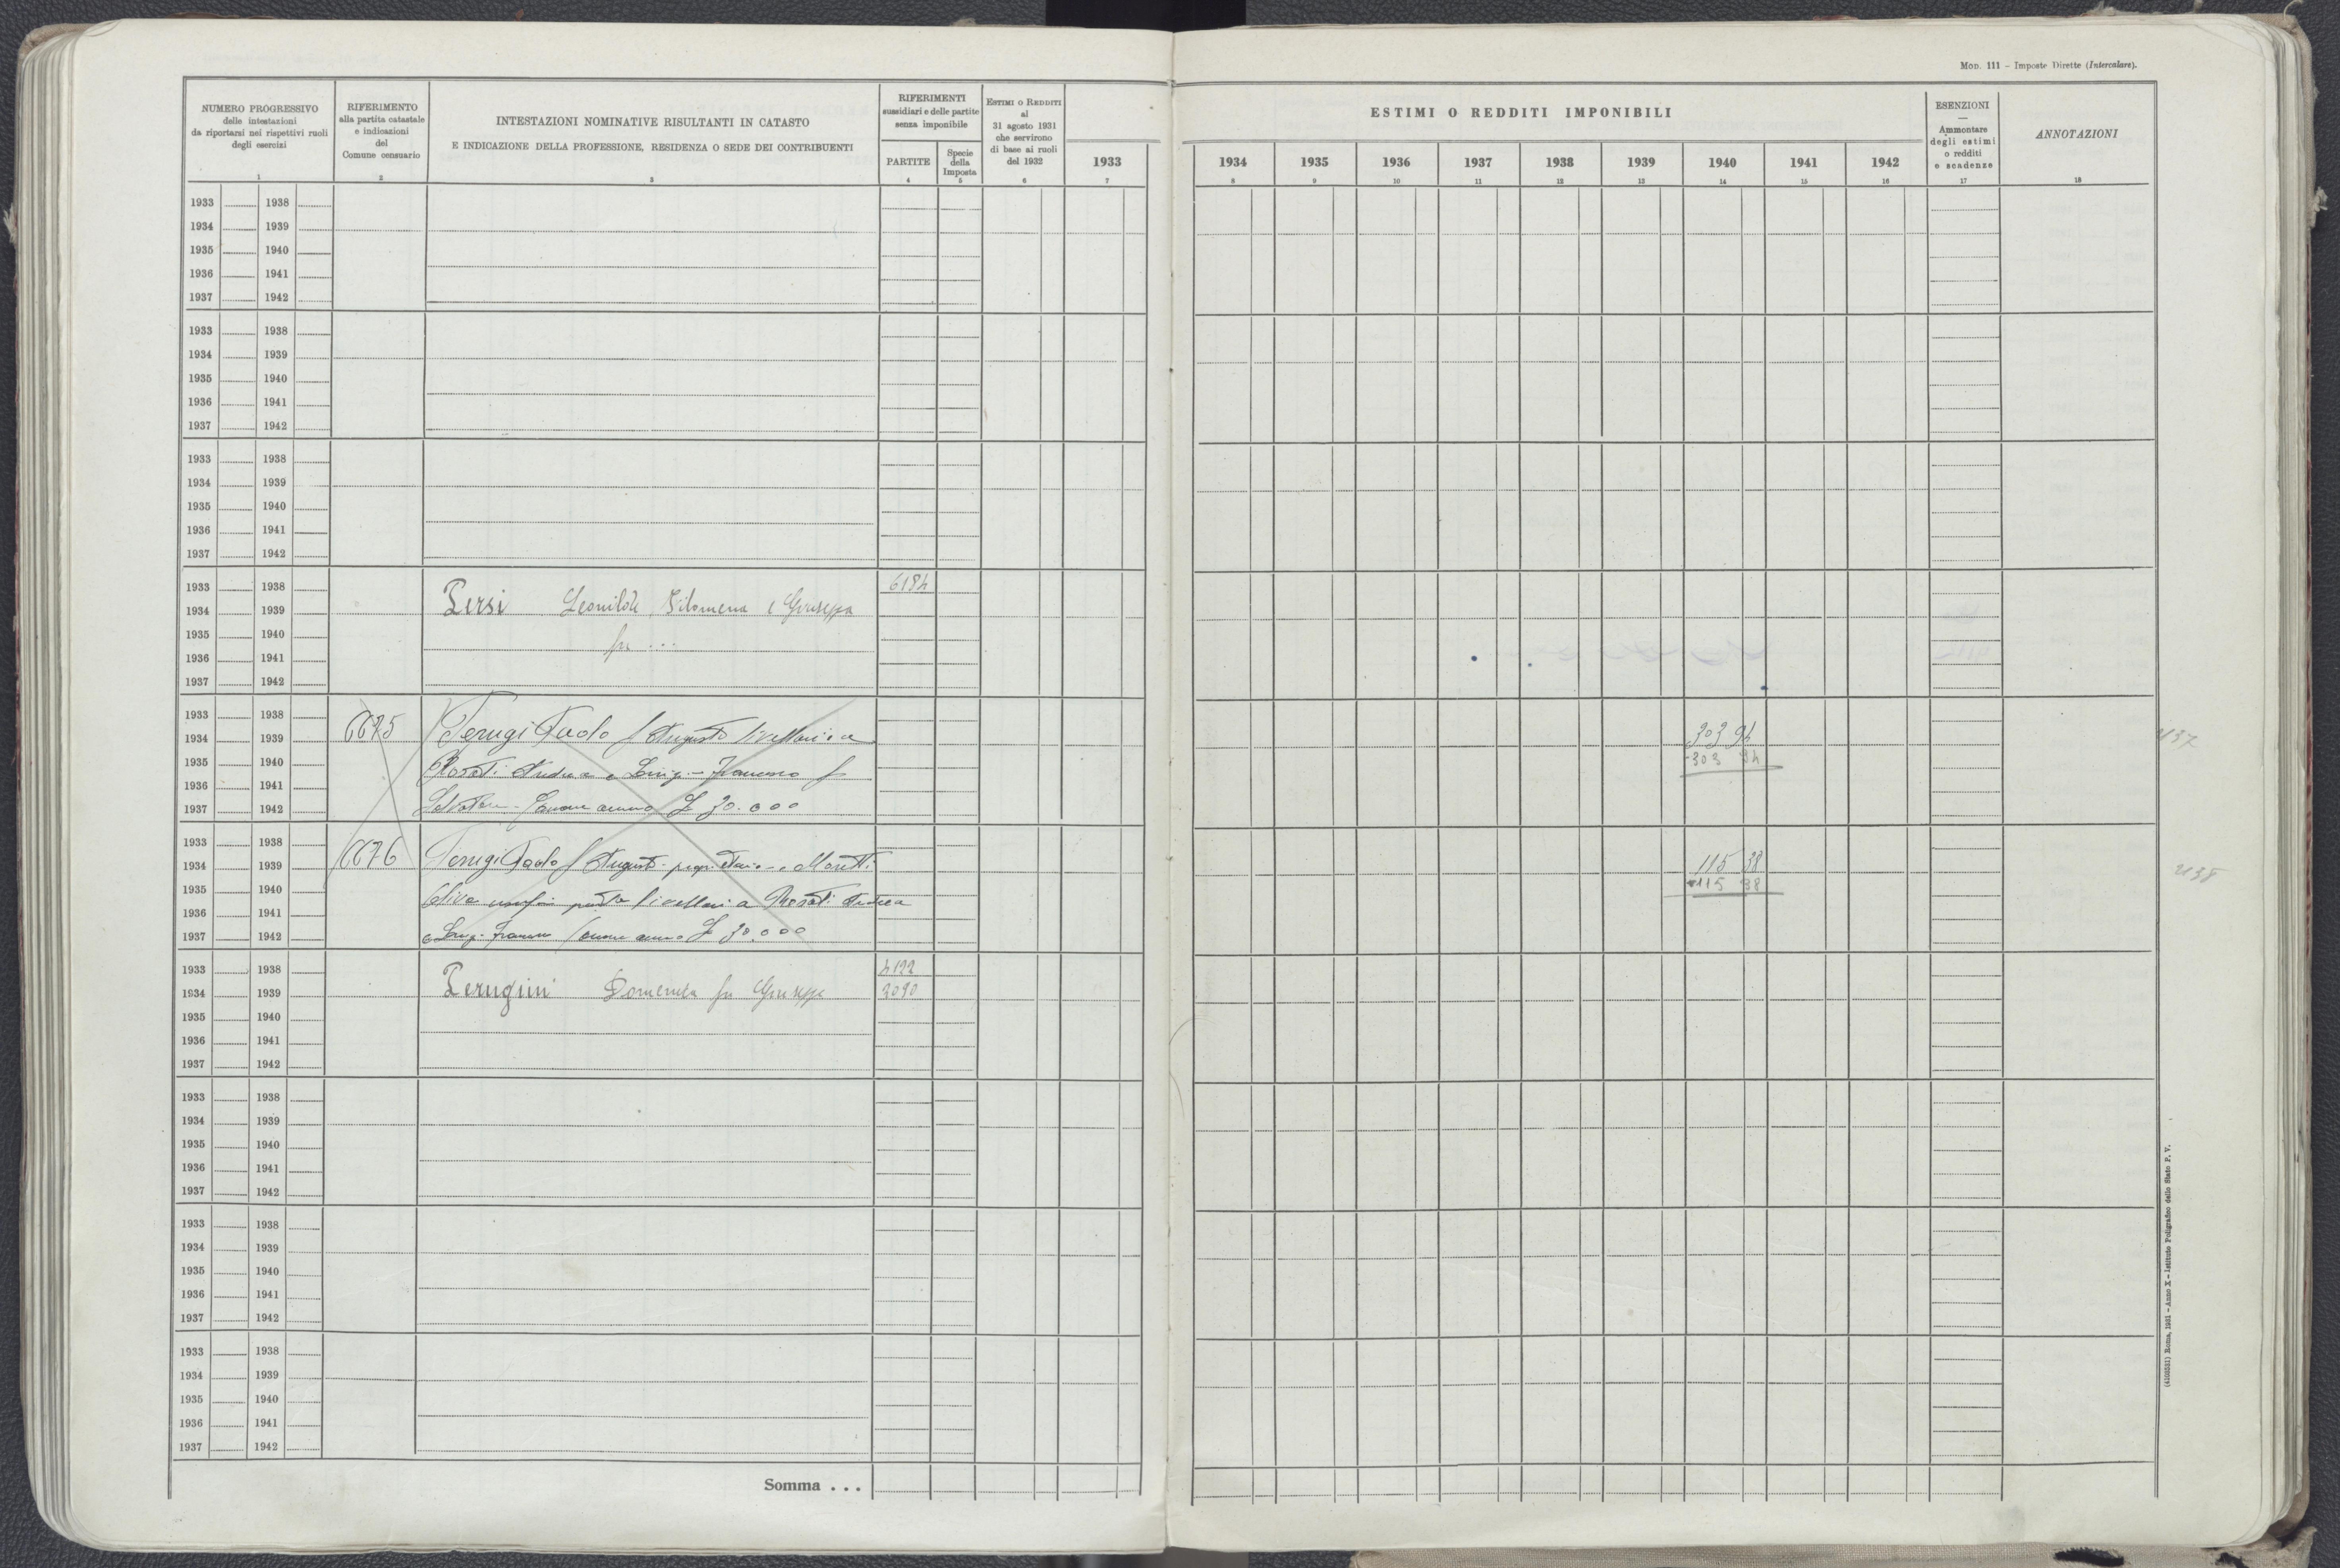 MOD. 111 – Imposte Dirette (Intercalare).
NUMERO PROGRESSIVO
delle intestazioni
da riportarsi nei rispettivi ruoli
degli esercizi
1
RIFERIMENTO
alla partita catastale
e indicazioni
del
Comune censuario
2
INTESTAZIONI NOMINATIVE RISULTANTI IN CATASTO
E INDICAZIONE DELLA PROFESSIONE, RESIDENZA O SEDE DEI CONTRIBUENTI
3
RIFERIMENTI
sussidiari e delle partite
senza imponibile
PARTITE
4
Specie
della
Imposta
5
ESTIMI O REDDITI
al
31 agosto 1931
che servirono
di base ai ruoli
del 1932
6
1933
7
ESTIMI O REDDITI IMPONIBILI
1934 1935 1936 1937 1938 1939 1940 1941 1942
8 9 10 11 12 13 14 15 16
ESENZIONI
—
Ammontare
degli estimi
o redditi
e scadenze
17
ANNOTAZIONI
18
1933 1938
1934 1939
1935 1940
1936 1941
1937 1942
1933 1938
1934 1939
1935 1940
1936 1941
1937 1942
1933 1938
1934 1939
1935 1940
1936 1941
1937 1942
1933 1938 6184
1934 1939 Persi Leonilde, Filomena e Giuseppa
1935 1940
1936 1941 fu ...
1937 1942
1933 1938
1934 1939 Perugi Paolo f Augusto livellario a 303 94
1935 1940 Rosati Andrea e Luigi-Francesco f 303 94
1936 1941
1937 1942 Salvatore - Canone annuo L 30.000
1933 1938
1934 1939 Perugi Paolo f Augusto proprietario e Moretti 115 38
1935 1940 115 38
1936 1941 livellari a Rosati Andrea
1937 1942 e Luigi-Francesco Canone annuo L 30.000
1933 1938 4122
1934 1939 Perugini Domenica fu Giuseppe 2090
1935 1940
1936 1941
1937 1942
1933 1938
1934 1939
1935 1940
1936 1941
1937 1942
1933 1938
1934 1939
1935 1940
1936 1941
1937 1942
1933 1938
1934 1939
1935 1940
1936 1941
1937 1942
Somma . . .
(4103531) Roma, 1931 – Anno X – Istituto Poligrafico dello Stato P. V.